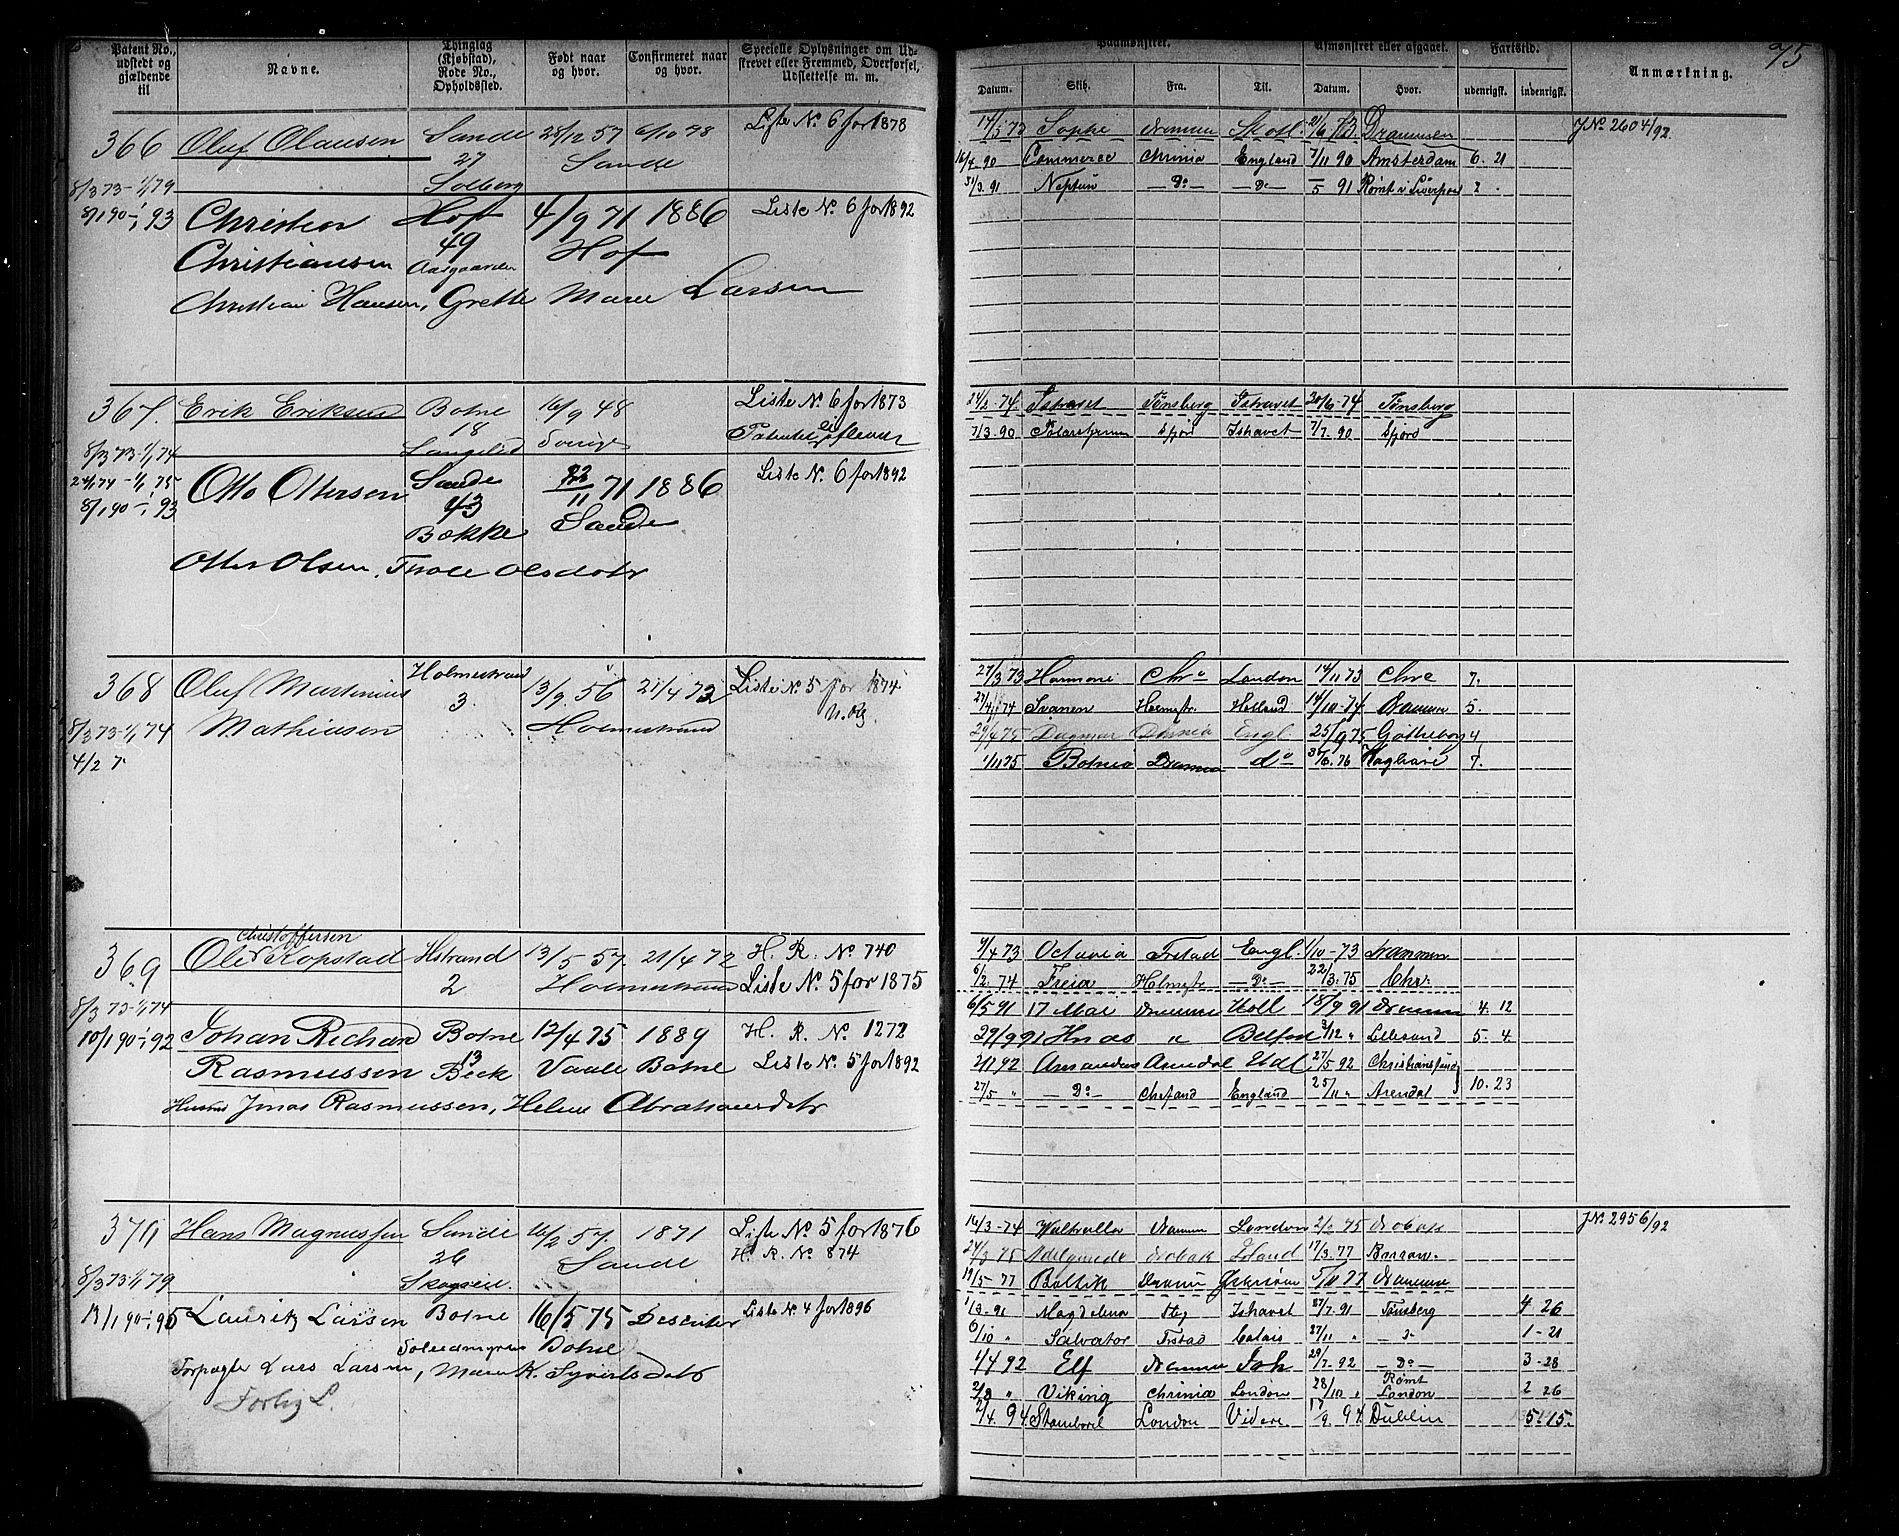 Patent No., udstedt og gjældende til
Navne.
Thinglag (Kjøbstad), Rode No., Opholdssted.
Født naar og hvor.
Confirmeret naar og hvor.
Specielle Oplysninger om Udskrevet eller Fremmed, Overførsel, Udslettelse m. m.
366 Oluf Olausen Sande 6/10 78 Liste No. 6 for 1878
27 Sande
8/3 73 - 1/1 79 Solberg
8/1 90 - 1/1 93 Christian Hof 4/9 71 1886 Liste No. 6 for 1892
Christiansen 49 Hof
Aasgaarden
Christian Hansen, Grethe Marie Larsen
367. Erik Eriksen Botne 16/9 48 Liste No. 6 for 1873
18 Sverige
8/3 73 - 1/1 74
Otto Ottersen Sande 71 1886 Liste No. 6 for 1892
8/1 90 - 1/1 93 43 Sande
Bække
Otter Olsen, Olsdatr
368 Oluf Martinius Holmestrand 13/9 56 21/4 72 Liste No. 5 for 1874
3
8/3 73 - 1/1 74 Mathiesen Holmestrand
4/2 7
369 Ole Christoffersen Kopstad Hstrand 13/5 57. 21/4 72 H. R. No. 740
2 Holmestrand Liste No. 5 for 1875
8/3 73 - 1/1 74
10/1 90 - 1/1 92 Johan Richard Botne 12/4 75 1889 H. R. No. 1272
Rasmussen 13 Beck Vaale Botne Liste No. 5 for 1892
Jonas Rasmussen, Helene Abrahamsdatr
370 Hans Magnussen Sande 16/2 57. 1871 Liste No. 5 for 1876
26 Sande H. R. No. 874
8/3 73 - 1/1 79
Lauritz Larsen Botne 16/5 75 Desenter Liste No. 4 for 1896
Botne
Lars Larsen, Maren K. Syvertsdatr
Forlig L.
95
Paamønstret.
Afmønstret eller afgaaet.
Fartstid.
Anmærkning.
Datum. Skib. Fra. Til. Datum. Hvor. udenrigsk. indenrigsk.
14/5 73 Sophie Drammen Skotl. 21/6 73 Drammen J No. 2604/92
16/4 90 Commerce Chrnia England 7/11 90 Amsterdam 6. 21
31/3. 91 Neptun — Do — — Do — /5 91 Rømt i Liverpool 2 .
24/2 - 74. Ishavet Tønsberg Ishavet 20/6 - 74 Tønsberg
7/3. 90 Sfjord Ishavet 7/7. 90 Sfjord
27/3 73 Harmoni Chra London 14/11 73 Chre 7.
74 Svanen Holmstr. Holland 14/10 - 74 Drammen 5.
29/4 75 Dagmar Chrnia Engl 25/9 75 Gøtheborg 4
1/11 75 Botnia Drammen do 76 7.
9/4 73 Octavia Frstad Engl. 1/10 - 73 Drammen
6/2. 74 Freia Holmstr — Do — 22/3. 75 Chr.
6/5 91 17 Mai Drammen Holl 18/9 91 Drammen 4. 12
29/9 91 " Belfast 3/12 " Lillesand 5. 4
Arendal Udl. 27/5 92 Christianssund
27/5 " — Do — England 25/11 " Arendal 10. 23
16/3 - 74 Walhalla Drammen London 2/2 75 Drøbak J No. 2956/92
24/3 75 Adelgunde Drøbak 17/3. 77
19/5 - 77 Baltik Drammen 5/10 77 Drammen
1/3 - 91 Magdalena Ishavet 27/7. 91 Tønsberg 4 26
6/10 " Salvator Frstad Calais 27/11 " 1 - 21
1/4 92 Elf Drammen 29/7. 92 — Do — 3 - 28
2/8 " Viking Chrnia London 28/10 " Rømt London 2 26
2/4. 94 London Videre 17/9. 94 Dublin 5. 15.